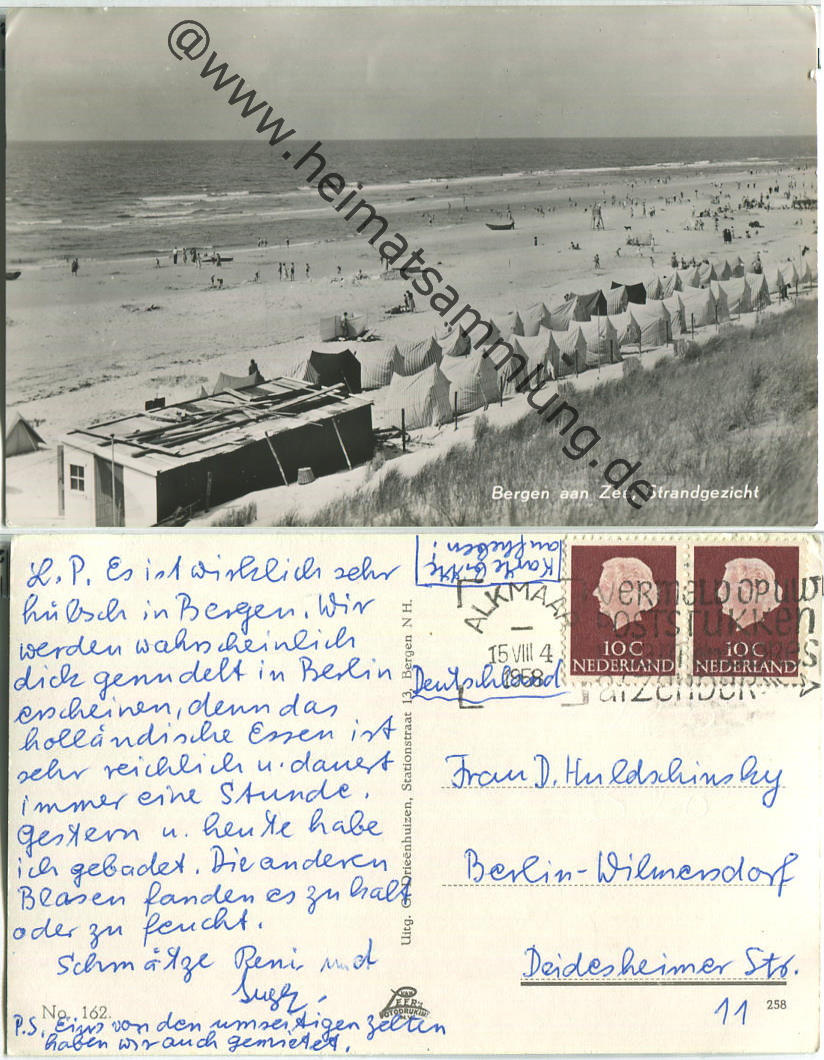 @www.heimatsammlung.de
Bergen aan Zee, Strandgezicht
L. P. Es ist wirklich sehr
hübsch in Bergen. Wir
werden wahrscheinlich
dick genudelt in Berlin
erscheinen, denn das
holländische Essen ist
sehr reichlich u. dauert
immer eine Stunde.
Gestern u. heute habe
ich gebadet. Die anderen
Blasen fanden es zu kalt
oder zu feucht.
Schmätze Reni und
P.S. Eins von den umseitigen Zelten
haben wir auch gemietet.
No. 162.
Uitg. Gr. Drieënhuizen, Stationstraat 13, Bergen N H.
VAN LEER'S FOTODRUKIND. N.V.
Karte bitte
aufheben!
ALKMAAR
15 VIII 4
1958
VERMELD OP UW
POSTSTUKKEN
10 C
NEDERLAND
10 C
NEDERLAND
Deutschland
Frau D. Huldschinsky
Berlin-Wilmersdorf
Deidesheimer Str.
11
258